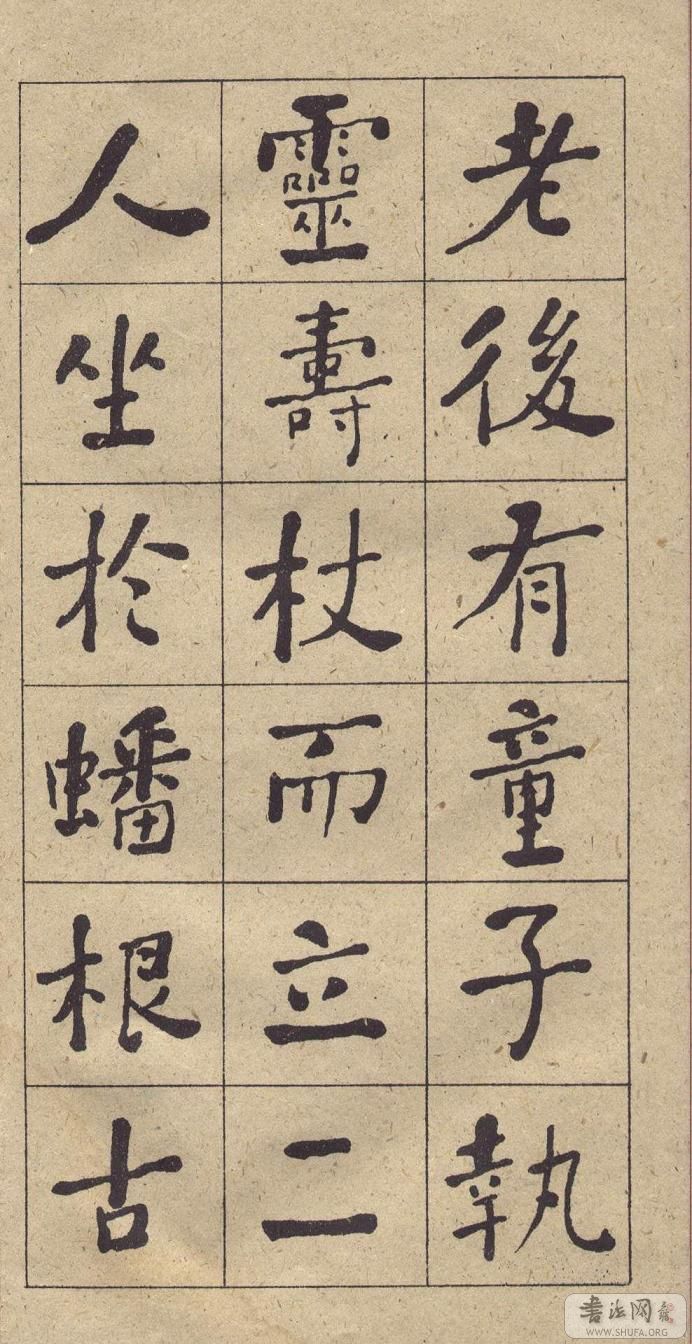 老後有童子執
靈壽杖而立二
人坐於蟠根古
書法网
WWW.SHUFA.ORG